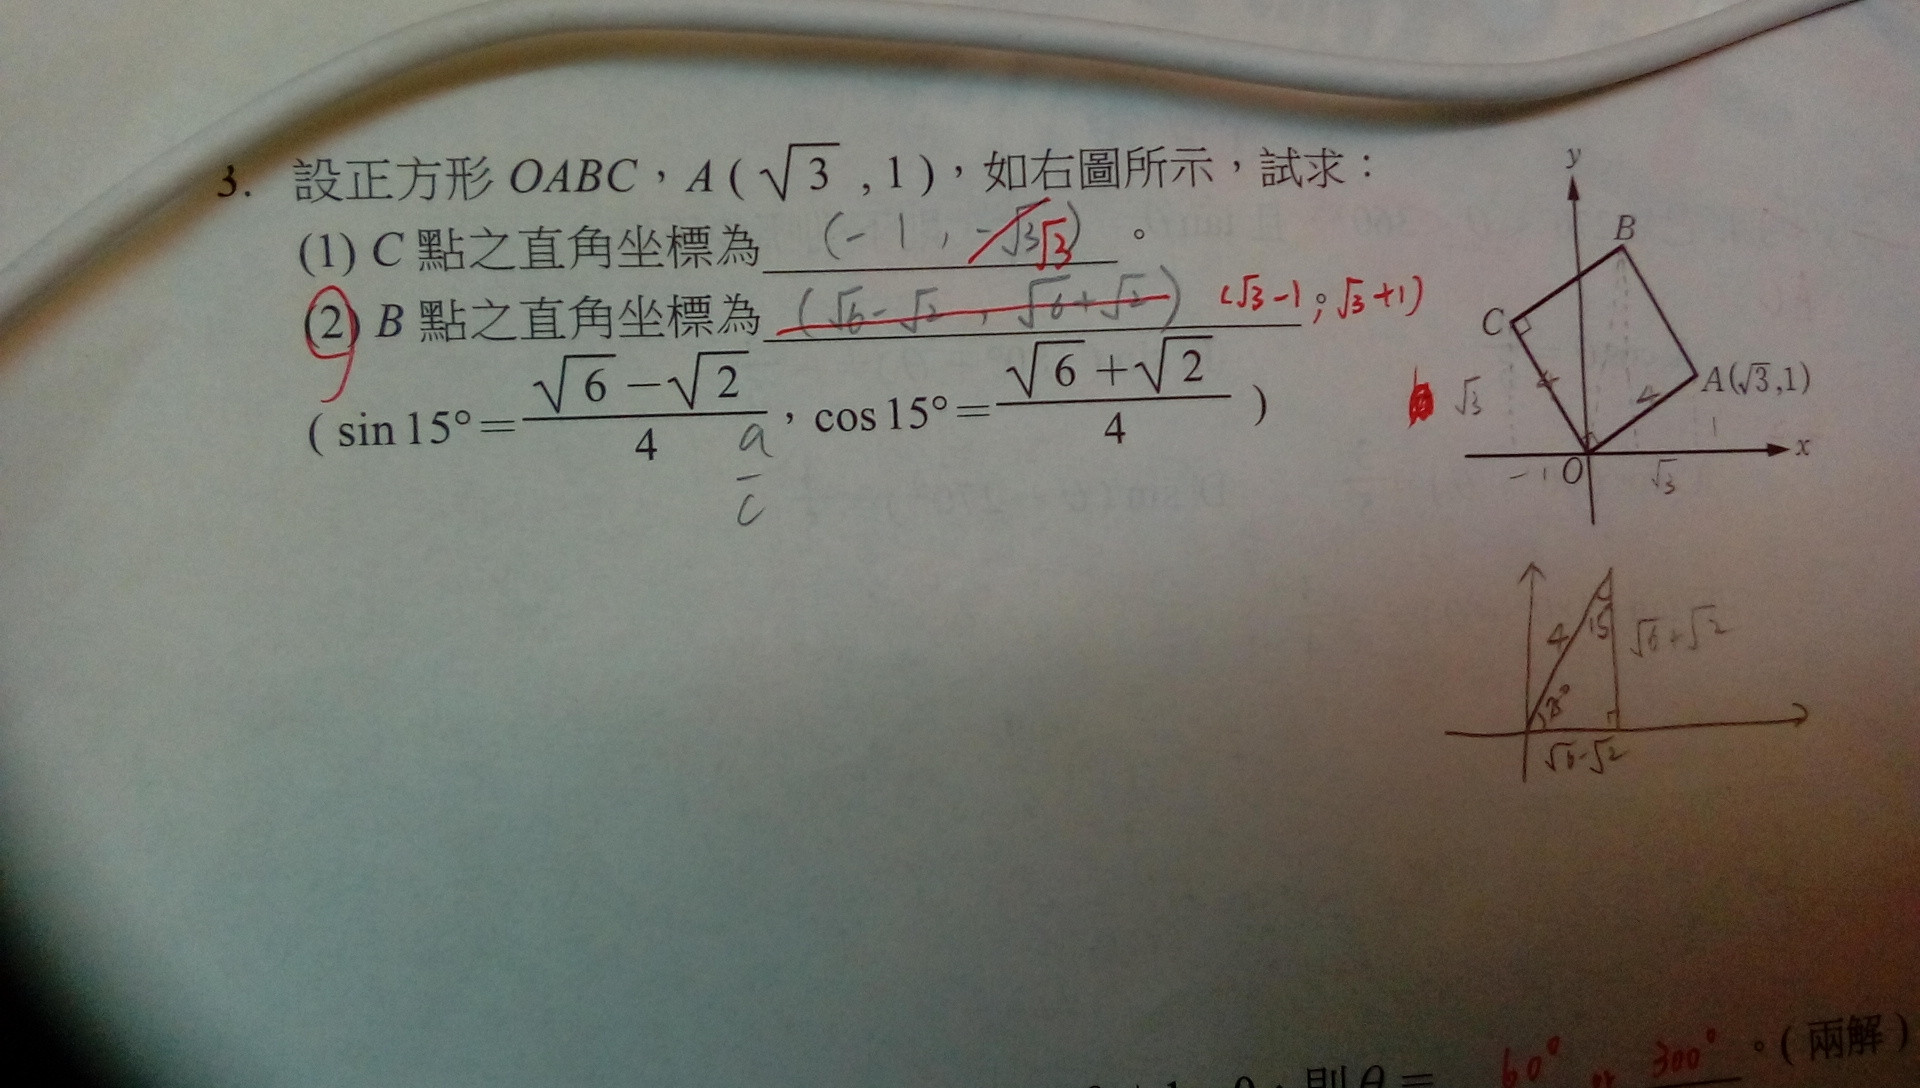 3. 設正方形 OABC，A(√3 , 1)，如右圖所示，試求：
(1) C 點之直角坐標為 (-1, -√3 √3) 。
(2) B 點之直角坐標為 (√6-√2 , √6+√2) (√3-1 ; √3+1)
( sin 15°= (√6-√2)/4 , cos 15°= (√6+√2)/4 )
a
c
y
B
C
A(√3,1)
√3
4
4
1
x
-1 O √3
4 15 √6+√2
75°
√6-√2
60° or 300° 。( 兩解 )
則 θ =